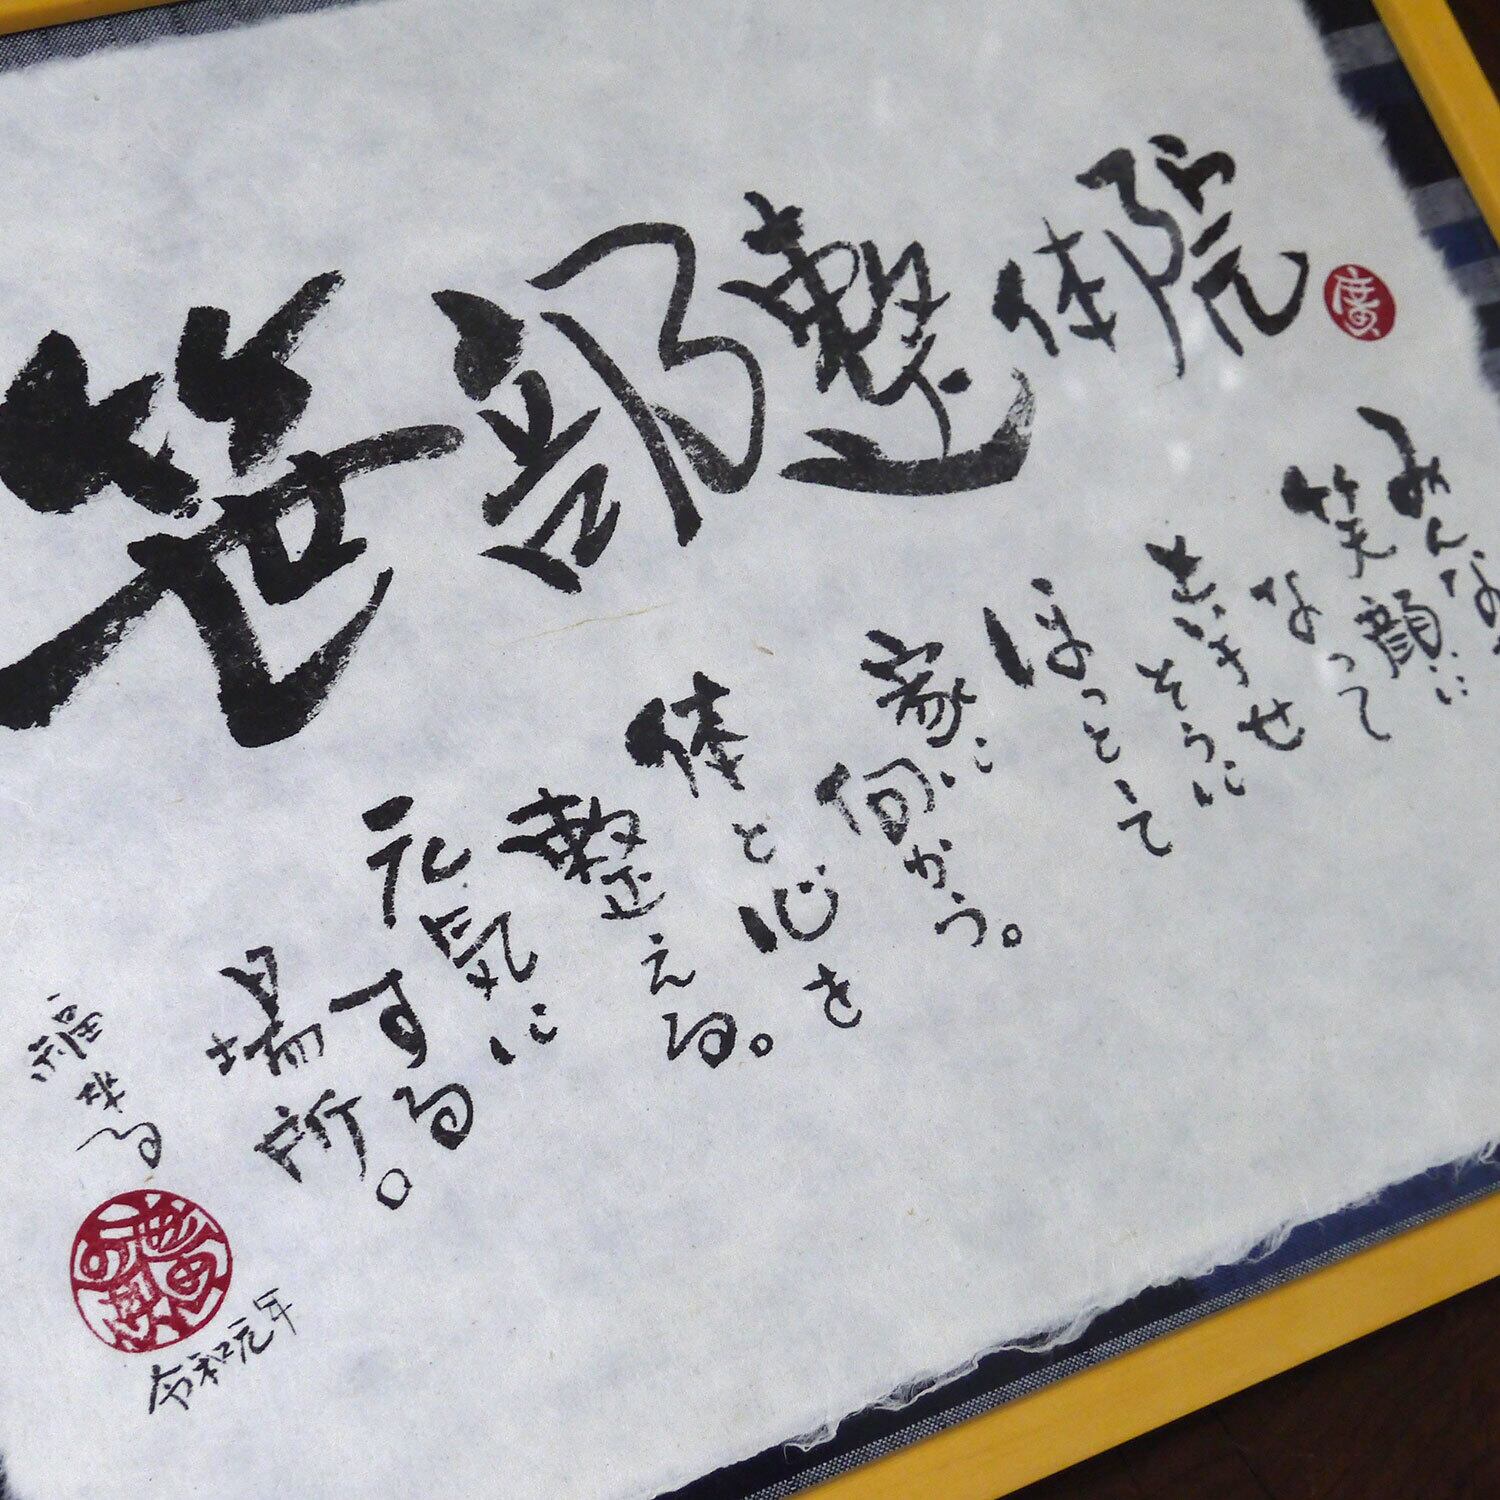 笹部整体院
みんな
笑顔に
なって
しあわせ
そうに
ほっとして
家に
向かう。
体と心を
整える。
元気に
する
場所。
福来る
令和元年